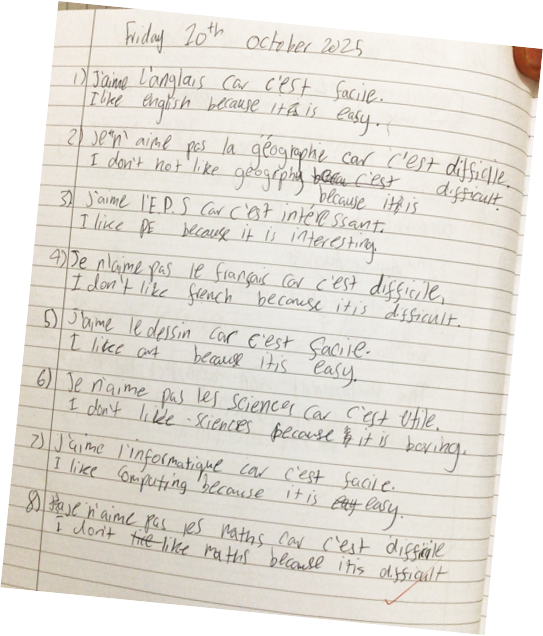 Friday 10th October 2025
1) J'aime l'anglais car c'est facile.
I like english because it is easy.
2) Je n'aime pas la géographe car c'est difficile.
I don't not like geogrphy c'est difficult.
because it is
3) J'aime l'E.P.S car c'est interessant.
I like PE because it is interesting.
4) Je n'aime pas le français car c'est difficile.
I don't like french because it is difficult.
5) J'aime le dessin car c'est facile.
I like art because it is easy.
6) Je n'aime pas les sciences car c'est utile.
I don't like sciences because it is boring.
7) J'aime l'informatique car c'est facile.
I like computing because it is easy.
8) Je n'aime pas les maths car c'est difficile
I don't like maths because it is difficult